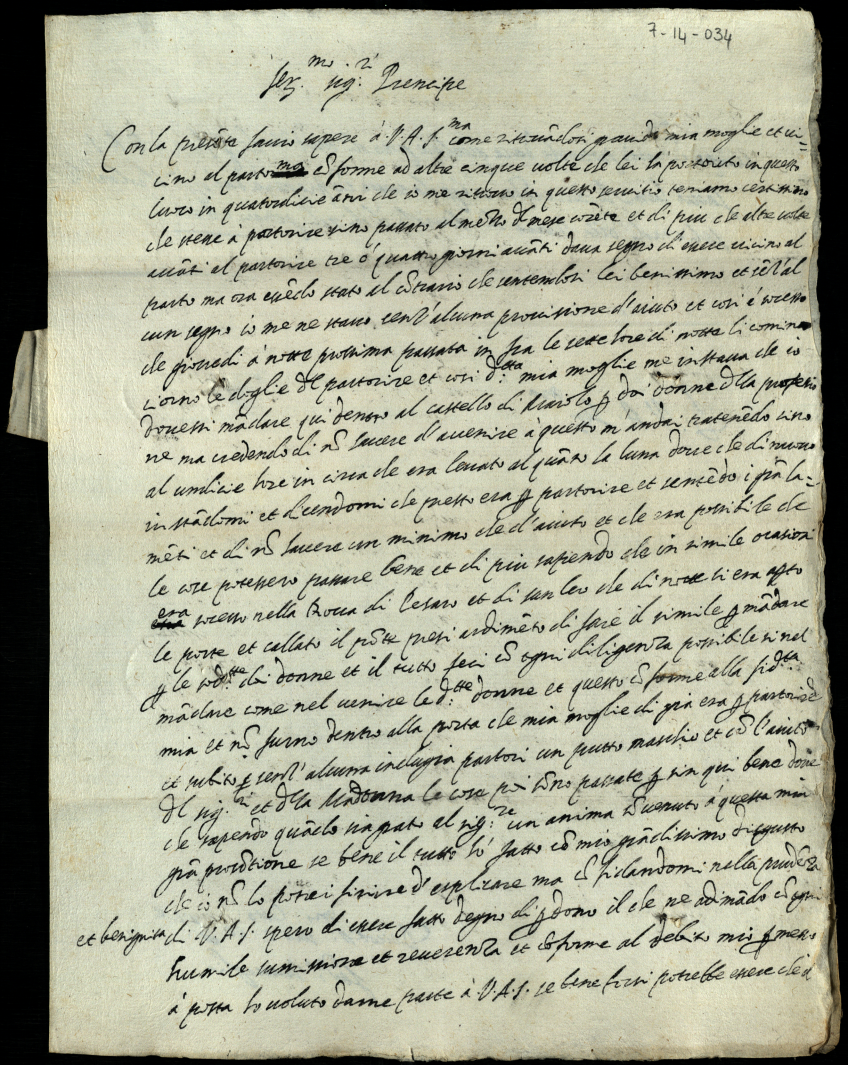 7-14-034
Ser.mo sig.r Prencipe
Con la presẽte facio sapere à V.A.S.ma come ritrovãdosi gravida mia moglie et vi=
cino al parto cõforme ad altre cinque volte che lei là partorito in questo
luoco in quatordicie ãni che io me ritrovo in questo servitio teniamo certissimo
che stese à partorire sino passato al mezo dl mese corẽte et di piu che altre volte
avãti el partorire tre ò quatro giorni avãti dava segno di essere vicino al
parto ma ora esẽdo stato al cõtrario che sentendosi lei benissimo et sẽz'al
cun segno io me ne stavo senz'alcuna provisione d'aiuto et cosi è socesso
che giovedi à notte prossima passata in fra le sette hore di notte li comin
ciorno le doglie dl partorire et cosi d.tta mia moglie me instava che io
dovessi mãdare qui dentro al castello di p doi donne dlla professio
ne ma credendo di nõ havere d'avenire à questo m'andai tratenẽdo sino
al undicie hore in circa che era levato al quãto la luna dove che di nuovo
instãdomi et dicendomi che presto era p partorire et sentẽdo i grã la=
mẽti et di nõ havere un minimo che d'aiuto et che era possibile che
le cose potessero passare bene et di piu sapiendo che in simile ocasioni
era socesso nella Rocca di Pesaro et di san leo che di notte si era apto
le porte et callato il põte presi ardimẽto di fare il simile p mãdare
p le sod.tte doi donne et il tutto feci cõ ogni diligenza possibile si nel
mãdare come nel venire le d.tte donne et questo cõforme alla fid.tta
mia et nõ furno dentro alla porta che mia moglie di già era p partorire
et subito senz'alcuna indugia partorì un putto maschio et cõ l'aiuto
dl sig.r et dlla Madonna le cose poi sono passate p sin qui bene dove
che sapendo quãdo sia grato al sig.re un anima sõ venuto à questa mia
grã se bene il tutto hò fatto cõ mio grãdissimo disgusto
che io nõ lo potrei finire d'esplicare ma cõfidandomi nella prudẽza
et benignità di V.A.S. spero di essere fatto degno di pdono il che ne adimãdo cõ ogni
humile sumissione et reverenza et cõforme al debito mio p messo
à posta ho voluto darne parte à V.A.S. se bene forsi potrebbe essere che d